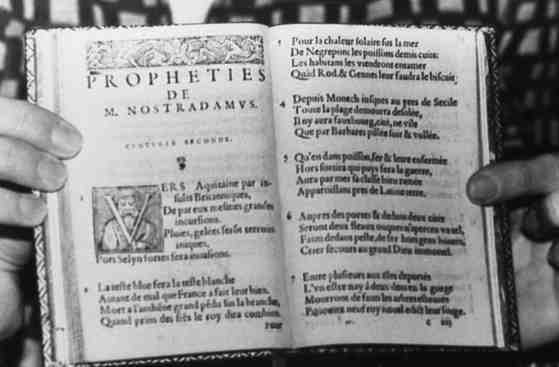 PROPHETIES
DE
M. NOSTRADAMVS.
CENTVRIE SECONDE.
1
VERS Aquitaine par in-
sults Britanniques,
De par eux mesmes grandes
incursions.
Pluies, gelées feront terroirs
iniques,
Port Selyn fortes fera inuasions.
2 La teste blue fera la teste blanche
Autant de mal que France a fait leur bien.
Mort a l'anthene grand pendu sus la branche,
Quand prins des siens le roy dira combien.
3 Pour la chaleur solaire sus la mer
De Negrepont les poissons demis cuits:
Les habitans les viendront entamer
Quād Rod. & Gennes leur faudra le biscuit.
4 Depuis Monech iusques au pres de Secile
Toute la plage demourra desolée,
Il ny aura fauxbourg, cité, ne vile
Que par Barbares pillée soit & vollée.
5 Qu'en dans poisson, fer & letre enfermée
Hors sortira qui pays fera la guerre,
Aura par mer sa classe bien ramée
Apparoissant pres de Latine terre.
6 Aupres des portes & dedans deux cités
Seront deux fleaux onques n'aperceu vn tel,
Faim dedans peste, de fer hors gens boutés,
Crier secours au grand Dieu immortel.
7 Entre plusieurs aux isles deportés
L'vn estre nay a deux dens en la gorge
Mourront de faim les arbres esbrotés
Pour eux neuf roy nouel edict leur forge.